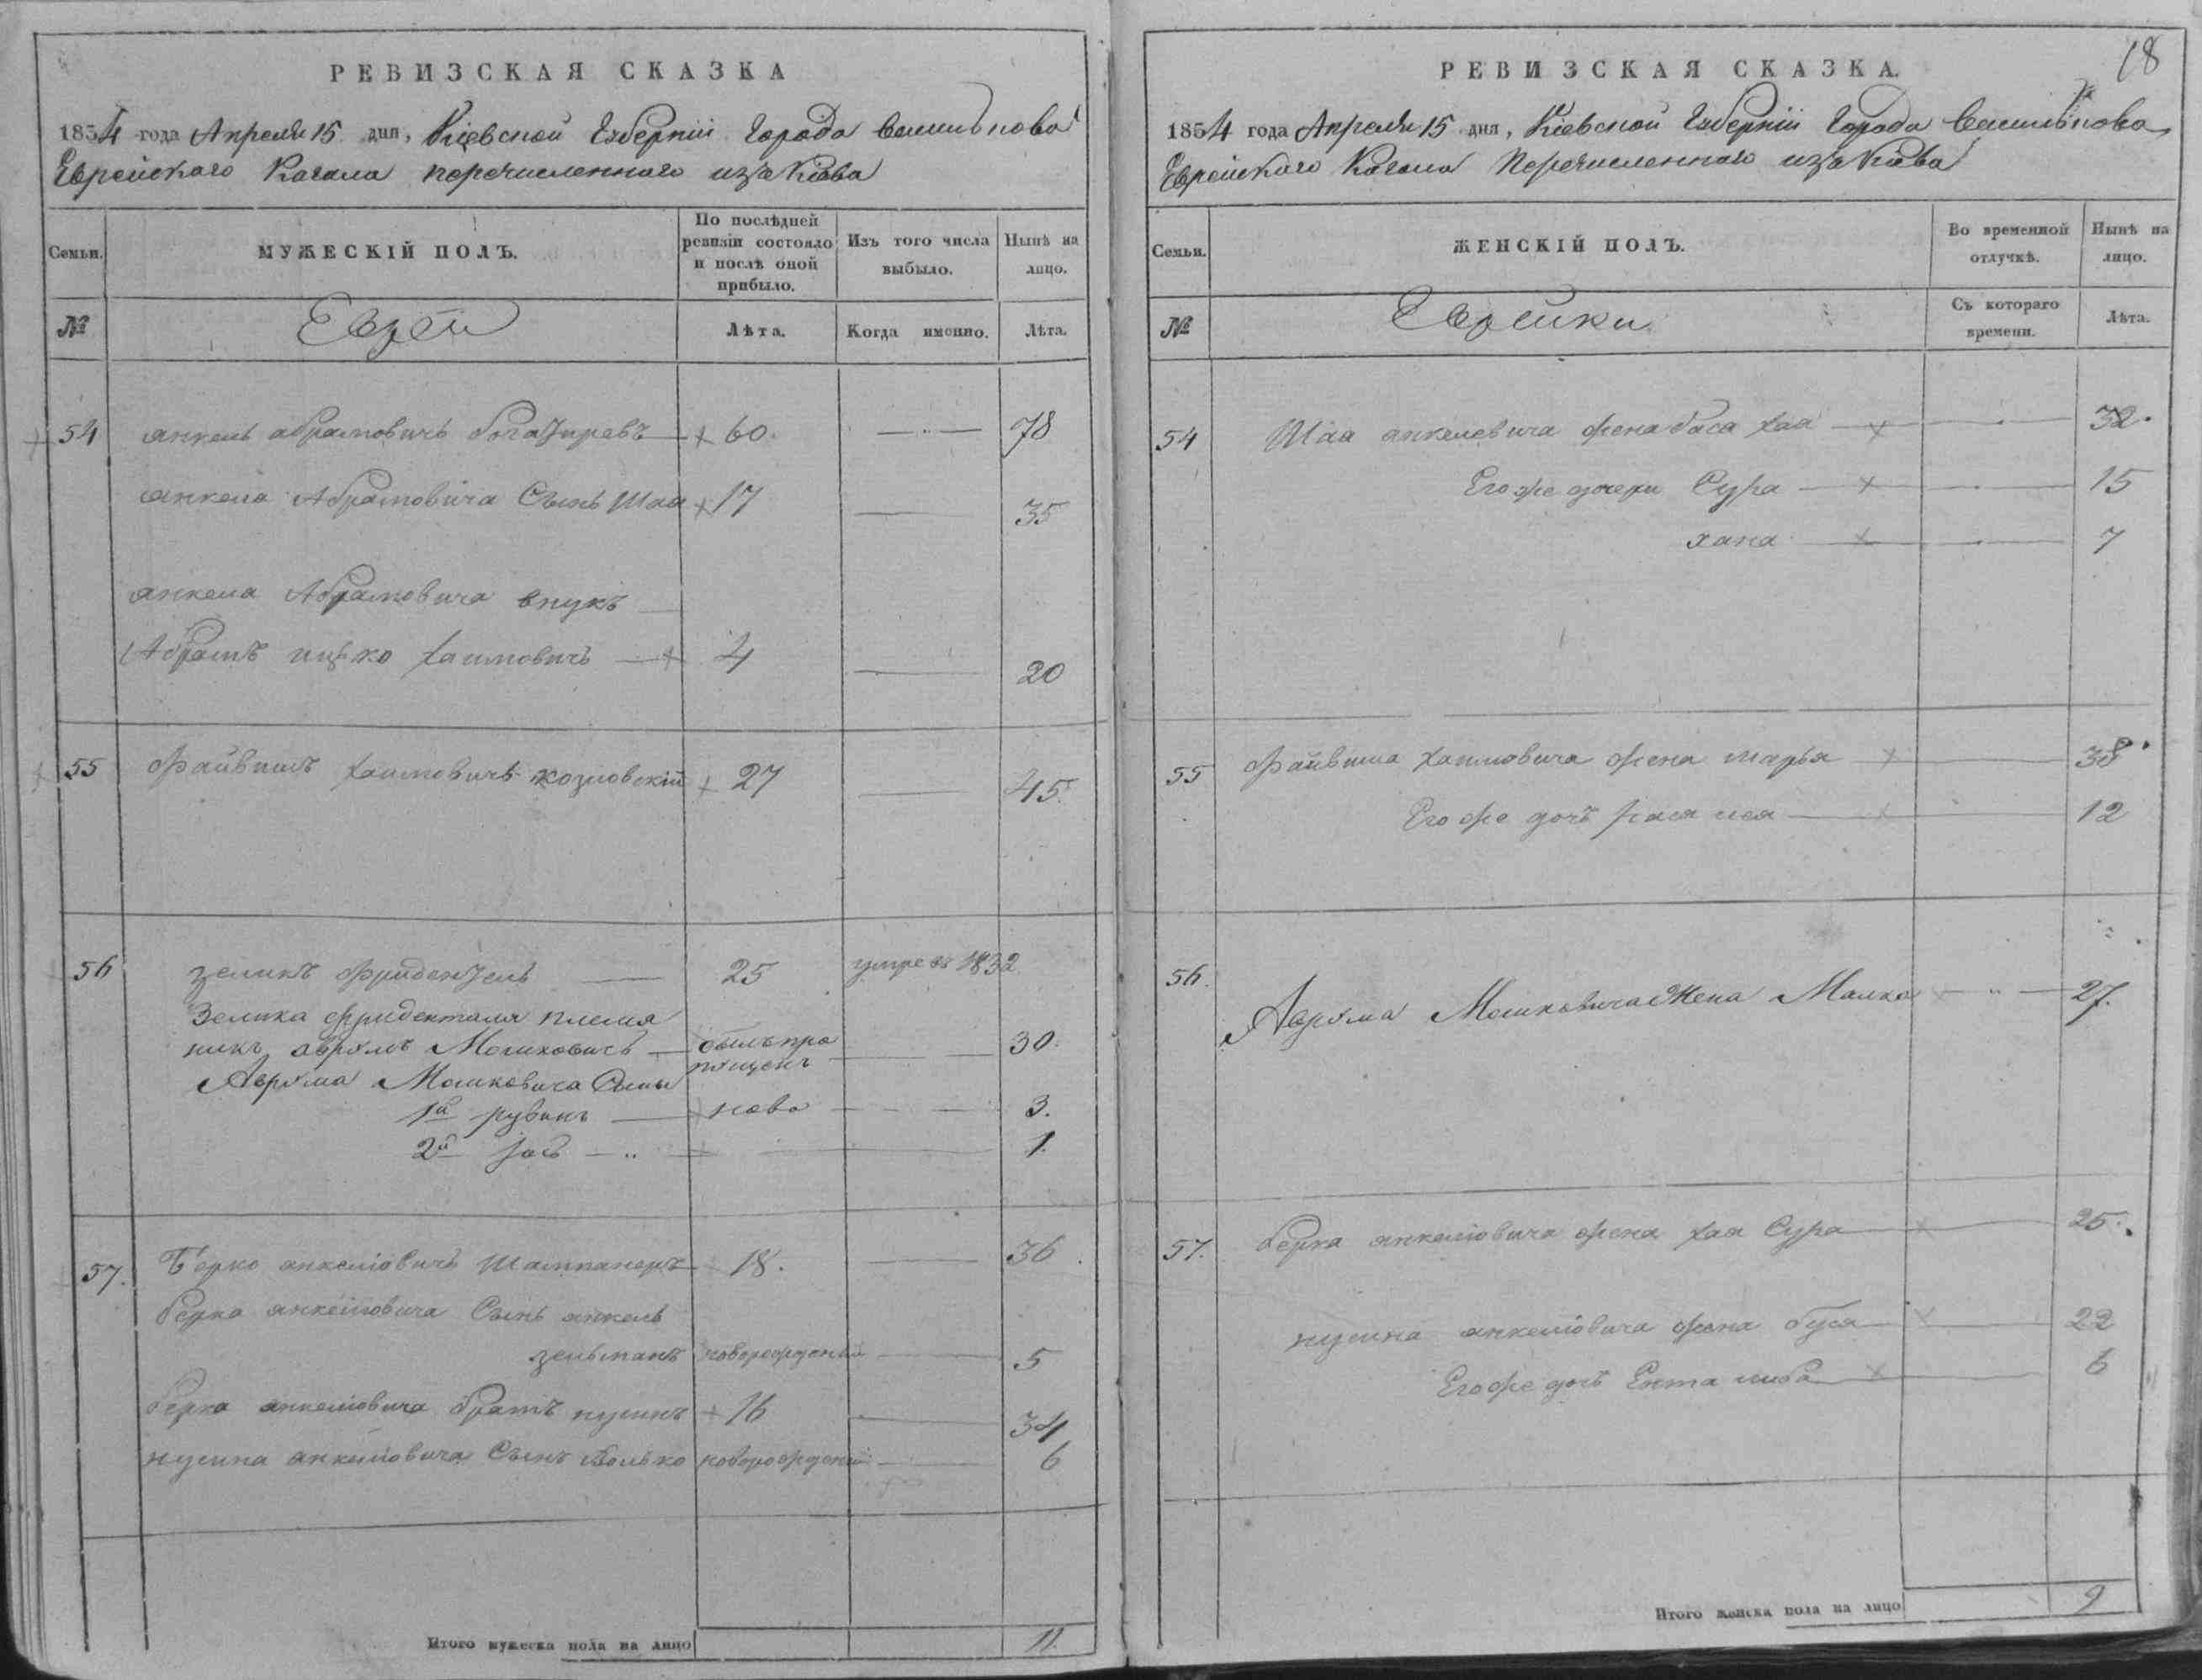 РЕВИЗСКАЯ СКАЗКА
1854 года Апреля 15 дня, Кіевской Губерніи Города Василькова
Еврейскаго Кагала перечисленнаго изъ Кіева
Семьи.
МУЖЕСКІЙ ПОЛЪ.
По послѣдней ревизіи состояло и послѣ оной прибыло.
Изъ того числа выбыло.
Нынѣ на лицо.
№
Евреи
Лѣта.
Когда именно.
Лѣта.
54 янкель абрамовичъ богатиревъ 60. 78
янкеля Абрамовича Сынъ Шая 17 35
янкеля Абрамовича внукъ
Абрамъ ицко хаимовичъ 4 20
55 Файвишъ хаимовичъ козловскій 27 45.
56 зеликъ Фриденталь 25 умре въ 1832
Зелика Фриденталя племя
никъ аврумъ Мошковичъ былъ про 30.
пущенъ
Аврума Мошковича Сыны
1й рувинъ ново 3.
2й 1.
57. Берко анкеліовичъ Шампанеръ 18. 36
берка анкеліовича Сынъ анкель
зельманъ новорожденый 5
берка анкеліовича братъ нусинъ 16 34
нусина анкеліовича Сынъ Волько новорожденый 6
Итого мужеска пола на лицо 11.
18
РЕВИЗСКАЯ СКАЗКА.
1854 года Апреля 15 дня, Кіевской Губерніи Города Василькова
Еврейскаго Кагала Перечисленнаго изъ Кіева
Семьи.
ЖЕНСКІЙ ПОЛЪ.
Во временной отлучкѣ.
Нынѣ на лицо.
№
Еврейки
Съ котораго времени.
Лѣта.
54 Шая анкелевича жена баса хая 32.
Его же дочери Сура 15
хана 7
55 Файвиша хаимовича жена марья 38.
Его же дочь 12
56. Аврума Мошковича Жена Малка 27.
57. берка анкеліовича жена хая Сура 25.
нусина анкеліовича жена буся 22
Его же дочь Ента либа 6
Итого женска пола на лицо 9